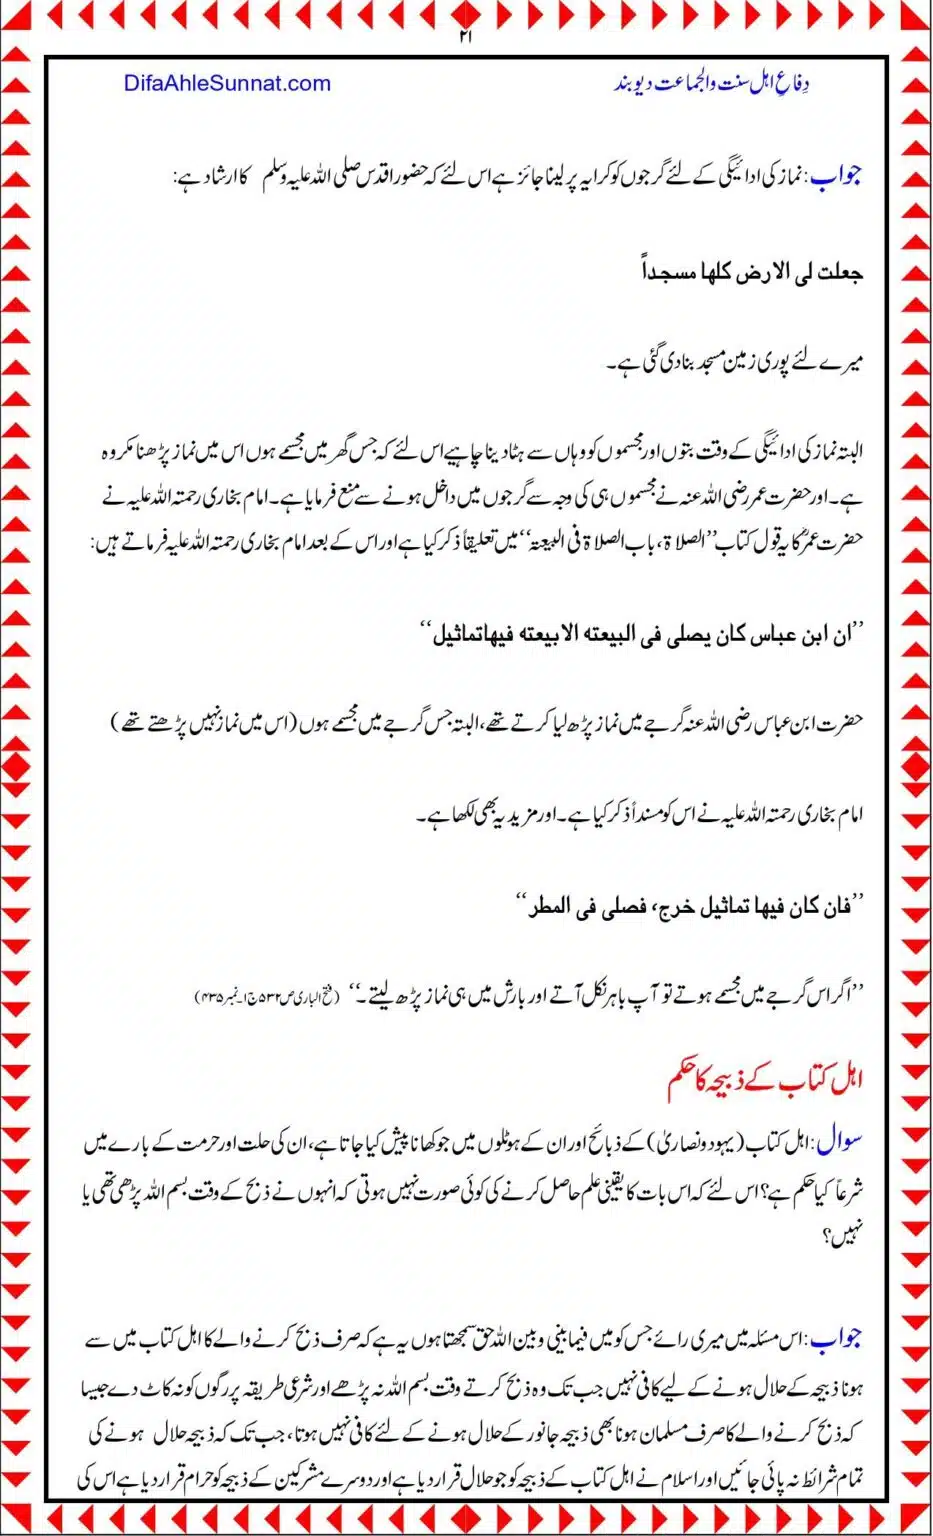 ۲۱
دِفاعِ اہل سنت والجماعت دیوبند DifaAhleSunnat.com
جواب: نماز کی ادائیگی کے لئے گرجوں کو کرایہ پر لینا جائز ہے اس لئے کہ حضور اقدس صلی اللہ علیہ وسلم کا ارشاد ہے:
جعلت لی الارض کلھا مسجداً
میرے لئے پوری زمین مسجد بنادی گئی ہے۔
البتہ نماز کی ادائیگی کے وقت بتوں اور مجسموں کو وہاں سے ہٹا دینا چاہیے اس لئے کہ جس گھر میں مجسمے ہوں اس میں نماز پڑھنا مکروہ
ہے۔ اور حضرت عمر رضی اللہ عنہ نے مجسموں ہی کی وجہ سے گرجوں میں داخل ہونے سے منع فرمایا ہے۔ امام بخاری رحمتہ اللہ علیہ نے
حضرت عمرؓ کا یہ قول کتاب ’’الصلاۃ، باب الصلاۃ فی البیعتہ‘‘ میں تعلیقاً ذکر کیا ہے اور اس کے بعد امام بخاری رحمتہ اللہ علیہ فرماتے ہیں:
’’ان ابن عباس کان یصلی فی البیعتہ الابیعتہ فیھا تماثیل‘‘
حضرت ابن عباس رضی اللہ عنہ گرجے میں نماز پڑھ لیا کرتے تھے، البتہ جس گرجے میں مجسمے ہوں (اس میں نماز نہیں پڑھتے تھے)
امام بخاری رحمتہ اللہ علیہ نے اس کو مسنداً ذکر کیا ہے۔ اور مزید یہ بھی لکھا ہے۔
’’فان کان فیھا تماثیل خرج، فصلی فی المطر‘‘
’’اگر اس گرجے میں مجسمے ہوتے تو آپ باہر نکل آتے اور بارش میں ہی نماز پڑھ لیتے۔‘‘ (فتح الباری ص ۵۳۲ ج ۱۔ نمبر ۴۳۵)
اہل کتاب کے ذبیحہ کا حکم
سوال: اہل کتاب (یہود و نصاریٰ) کے ذبائح اور ان کے ہوٹلوں میں جو کھانا پیش کیا جاتا ہے، ان کی حلت اور حرمت کے بارے میں
شرعاً کیا حکم ہے؟ اس لئے کہ اس بات کا یقینی علم حاصل کرنے کی کوئی صورت نہیں ہوتی کہ انہوں نے ذبح کے وقت بسم اللہ پڑھی تھی یا
نہیں؟
جواب: اس مسئلہ میں میری رائے جس کو میں فیما بینی و بین اللہ حق سمجھتا ہوں یہ ہے کہ صرف ذبح کرنے والے کا اہل کتاب میں سے
ہونا ذبیحہ کے حلال ہونے کے لیے کافی نہیں جب تک وہ ذبح کرتے وقت بسم اللہ نہ پڑھے اور شرعی طریقہ پر رگوں کو نہ کاٹ دے جیسا
کہ ذبح کرنے والے کا صرف مسلمان ہونا بھی ذبیحہ جانور کے حلال ہونے کے لئے کافی نہیں ہوتا، جب تک کہ ذبیحہ حلال ہونے کی
تمام شرائط نہ پائی جائیں اور اسلام نے اہل کتاب کے ذبیحہ کو جو حلال قرار دیا ہے اور دوسرے مشرکین کے ذبیحہ کو حرام قرار دیا ہے اس کی